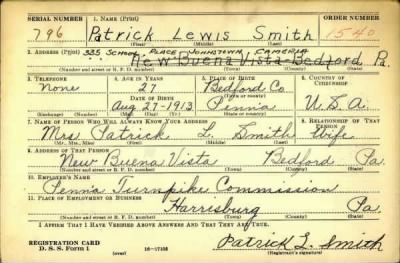 SERIAL NUMBER 1. NAME (Print) ORDER NUMBER
796 Patrick Lewis Smith 1540
(First) (Middle) (Last)
2. ADDRESS (Print) 335 SCHOOL PLACE JOHNSTOWN CAMBRIA
New Buena Vista Bedford Pa.
(Number and street or R. F. D. number) (Town) (County) (State)
3. TELEPHONE 4. AGE IN YEARS 5. PLACE OF BIRTH 6. COUNTRY OF CITIZENSHIP
None 27 Bedford Co.
DATE OF BIRTH (Town or county)
Aug 27-1913 Penna U.S.A.
(Exchange) (Number) (Mo.) (Day) (Yr.) (State or country)
7. NAME OF PERSON WHO WILL ALWAYS KNOW YOUR ADDRESS 8. RELATIONSHIP OF THAT PERSON
Mrs Patrick L. Smith Wife
(Mr., Mrs., Miss) (First) (Middle) (Last)
9. ADDRESS OF THAT PERSON
New Buena Vista Bedford Pa.
(Number and street or R. F. D. number) (Town) (County) (State)
10. EMPLOYER'S NAME
Penna Turnpike Commission
11. PLACE OF EMPLOYMENT OR BUSINESS
Harrisburg Pa.
(Number and street or R. F. D. number) (Town) (County) (State)
I AFFIRM THAT I HAVE VERIFIED ABOVE ANSWERS AND THAT THEY ARE TRUE.
REGISTRATION CARD
D. S. S. Form 1 (over) 16-17105 Patrick L. Smith
(Registrant's signature)